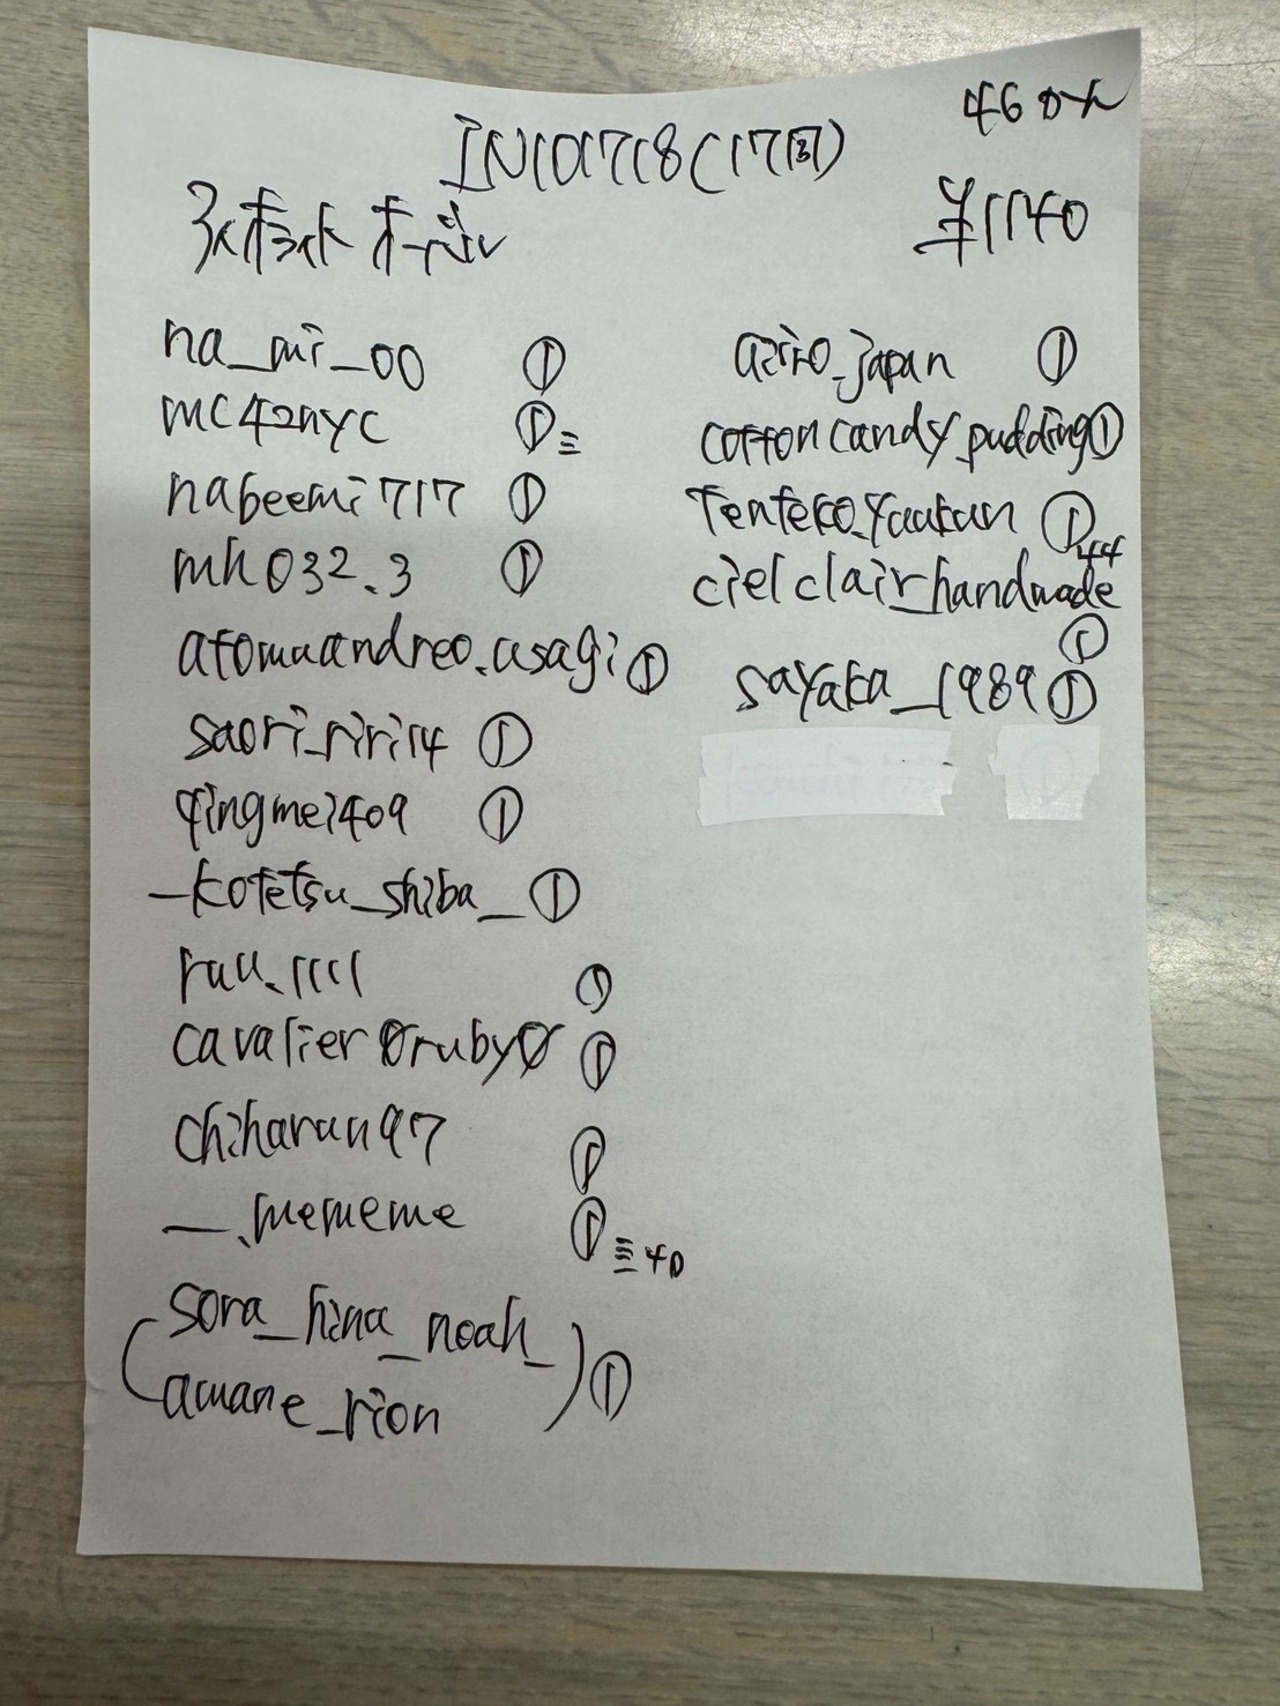 46分
IN101718(17周)
¥1140
na_mi_00 ①
mc42nyc ①
nabeemi717 ①
mh032.3 ①
atomuandreo.usagi ①
saori_riri14 ①
qingmei409 ①
_kotetsu_shiba_ ①
ruu.1111 ①
cavalier0ruby0 ①
chiharun97 ①
__.mememe ① 40
(sora_hina_noah_
amane_rion) ①
airo_japan ①
cottoncandy_pudding ①
tenteko.yuukun ① 44
cielclair_handmade
①
sayaka_1989 ①